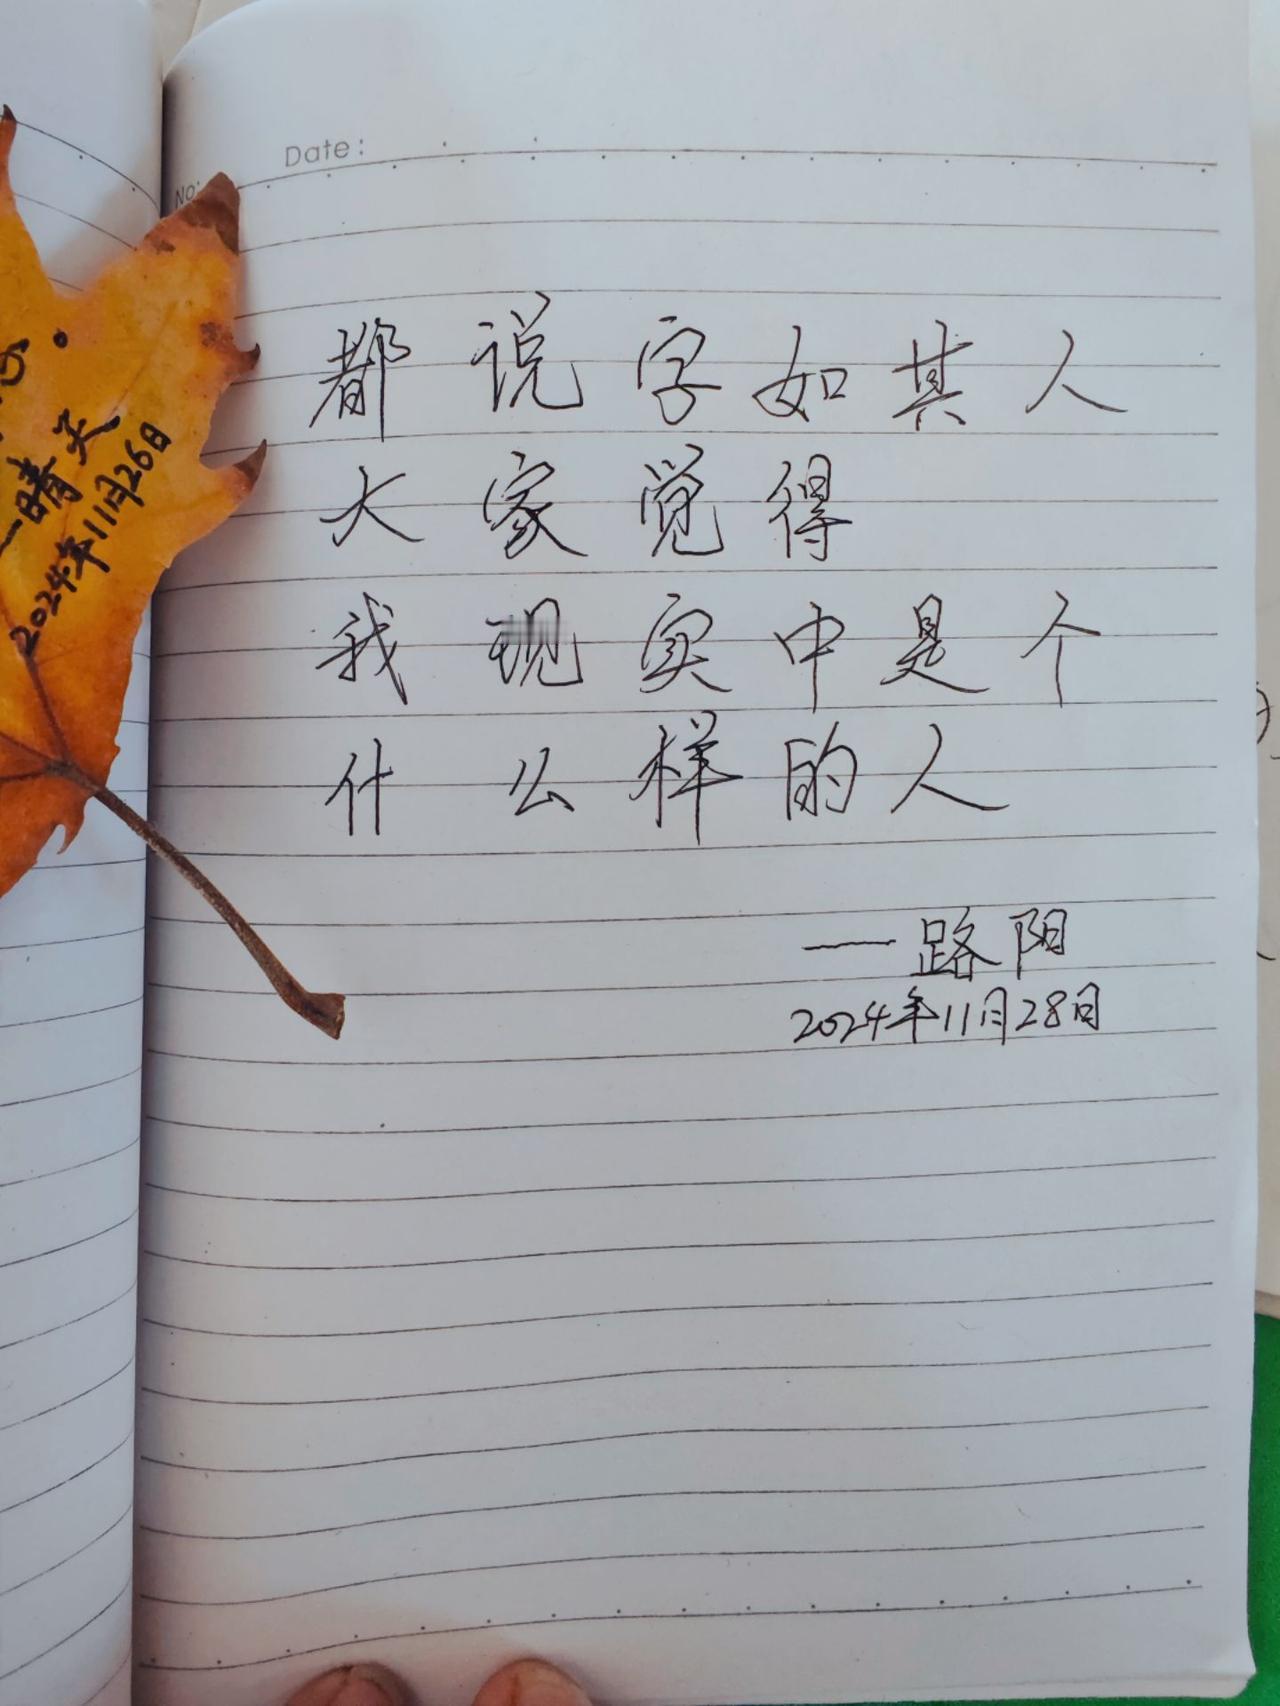 Date:
No:
都说字如其人
大家觉得
我现实中是个
什么样的人
一路阳
2024年11月28日
一晴天
2024年11月26日